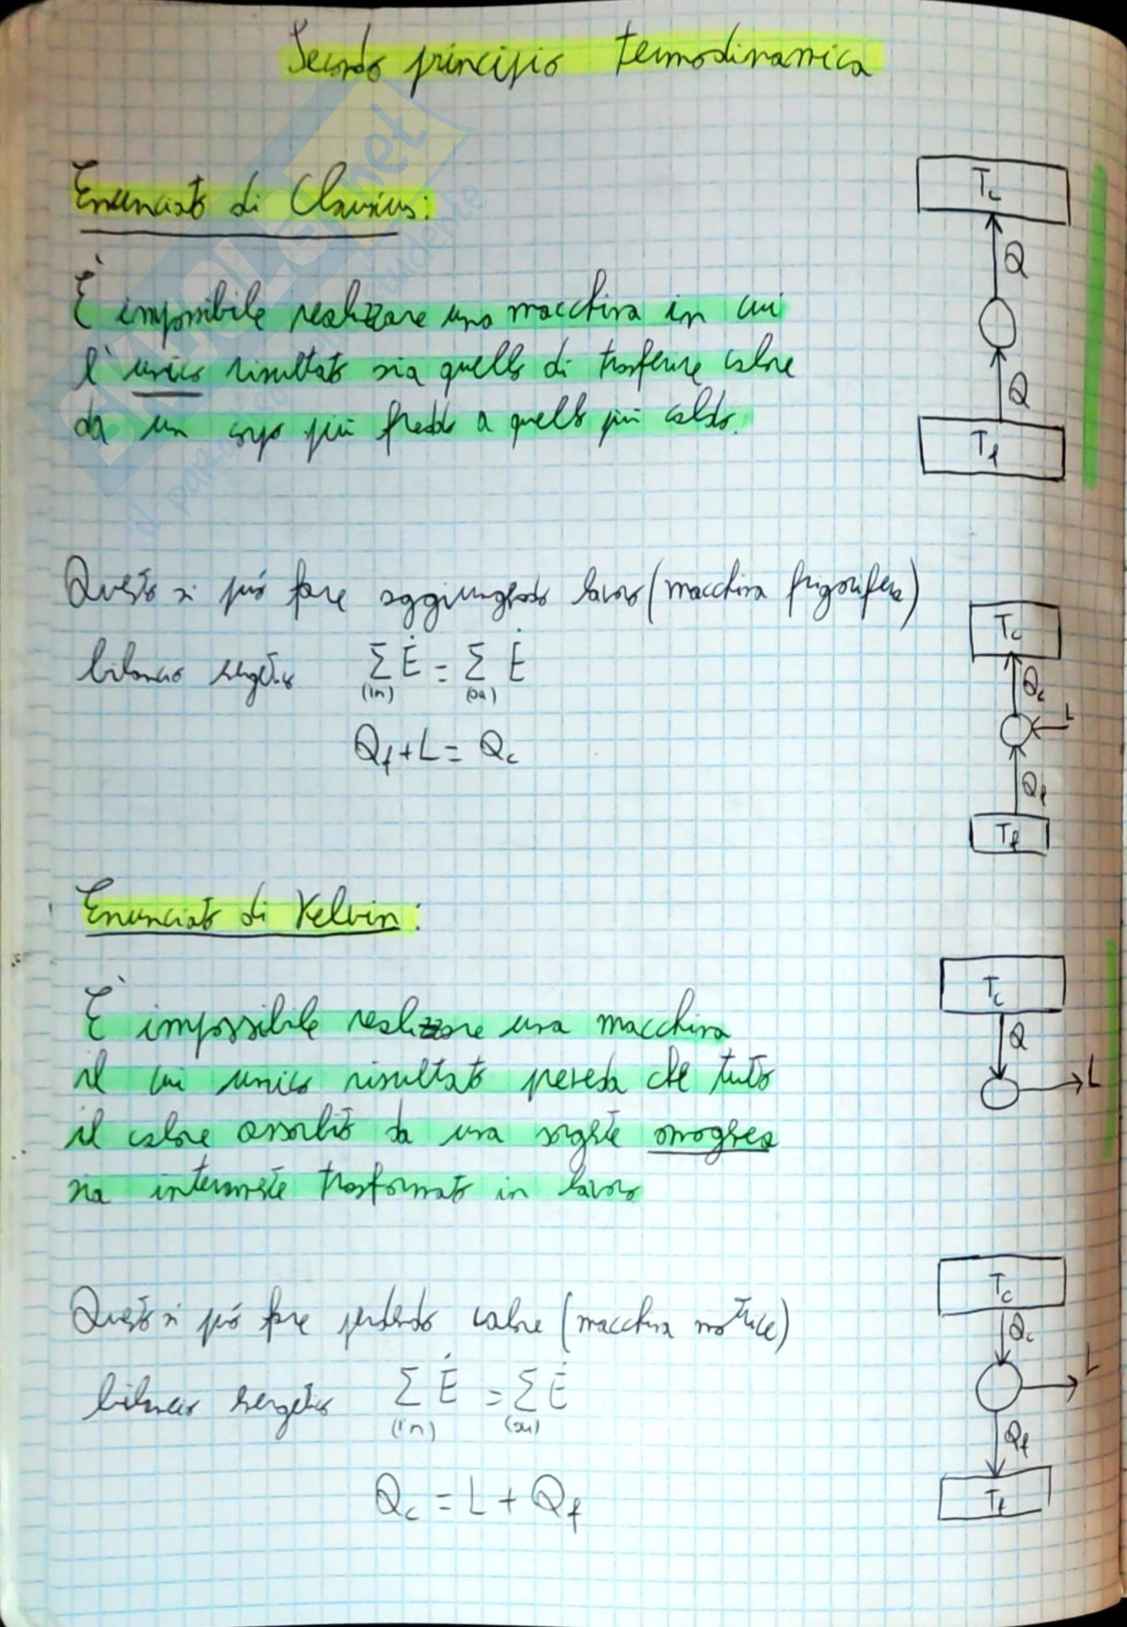 Secondo principio termodinamica
Enunciato di Clausius:
È impossibile realizzare una macchina in cui
l'unico risultato sia quello di trasferire calore
da un corpo più freddo a quello più caldo.
Tc
Q
Q
Tf
Questo si può fare aggiungendo lavoro (macchina frigorifera)
bilancio energetico Σ(in) Ė = Σ(out) Ė
Qf + L = Qc
Tc
Qc
L
Qf
Tf
Enunciato di Kelvin:
È impossibile realizzare una macchina
il cui unico risultato preveda che tutto
il calore assorbito da una sorgente omogenea
sia interamente trasformato in lavoro
Tc
Q
L
Questo si può fare perdendo calore (macchina motrice)
bilancio energetico Σ(in) Ė = Σ(out) Ė
Qc = L + Qf
Tc
Qc
L
Qf
Tf